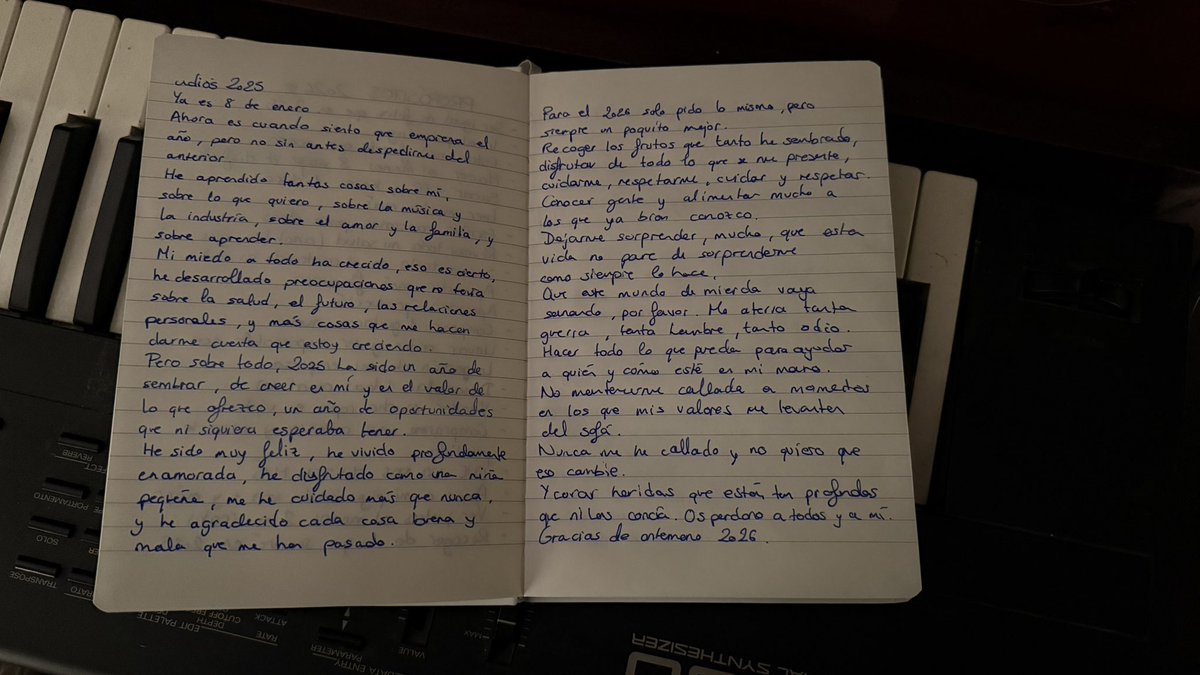 adiós 2025
Ya es 8 de enero
Ahora es cuando siento que empieza el
año, pero no sin antes despedirme del
anterior.
He aprendido tantas cosas sobre mí,
sobre lo que quiero, sobre la música y
la industria, sobre el amor y la familia, y
sobre aprender.
Mi miedo a todo ha crecido, eso es cierto,
he desarrollado preocupaciones que no tenía
sobre la salud, el futuro, las relaciones
personales, y más cosas que me hacen
darme cuenta que estoy creciendo.
Pero sobre todo, 2025 ha sido un año de
sembrar, de creer en mí y en el valor de
lo que ofrezco, un año de oportunidades
que ni siquiera esperaba tener.
He sido muy feliz, he vivido profundamente
enamorada, he disfrutado como una niña
pequeña, me he cuidado más que nunca,
y he agradecido cada cosa buena y
mala que me han pasado.
Para el 2026 solo pido lo mismo, pero
siempre un poquito mejor.
Recoger los frutos que tanto he sembrado,
disfrutar de todo lo que se me presente,
cuidarme, respetarme, cuidar y respetar.
Conocer gente y alimentar mucho a
los que ya bien conozco.
Dejarme sorprender, mucho, que esta
vida no pare de sorprenderme
como siempre lo hace.
Que este mundo de mierda vaya
sanando, por favor. Me aterra tanta
guerra, tanta hambre, tanto odio.
Hacer todo lo que pueda para ayudar
a quién y cómo esté en mi mano.
No mantenerme callada en momentos
en los que mis valores me levanten
del sofá.
Nunca me he callado y no quiero que
eso cambie.
Y corar heridas que están tan profundas
que ni las conocía. Os perdono a todos y a mí.
Gracias de antemano 2026.
REVERB
PORTAMENTO
SOLO
TRANSPOSE
EDIT PALETTE
CUTOFF
DEPTH
ATTACK
RATE
DATA ENTRY
PARAMETER
VALUE
MAX
SYNTHESIZER